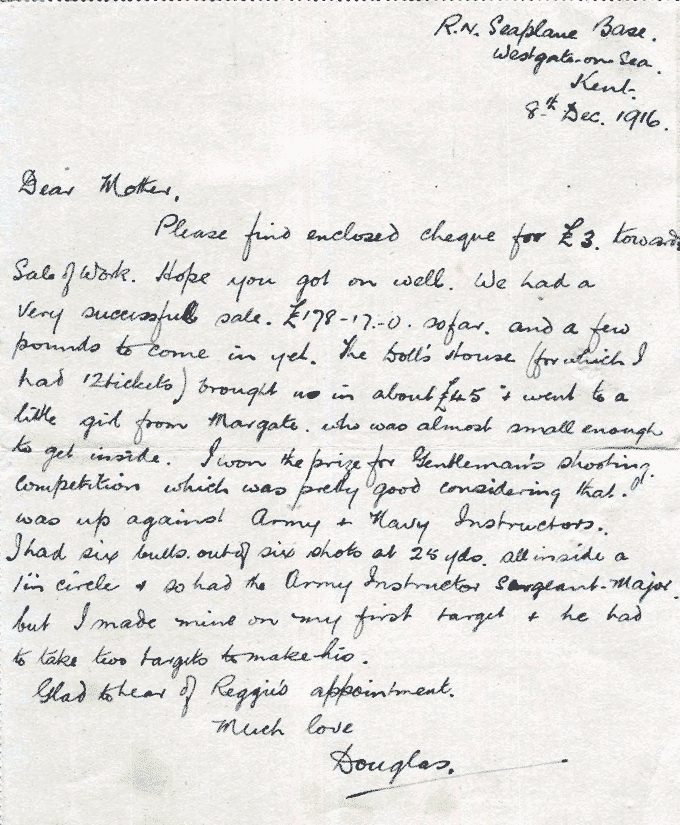 R.N. Seaplane Base.
Westgate-on-Sea.
Kent.
8th Dec. 1916.
Dear Mother,
Please find enclosed cheque for £3. towards
Sale of Work. Hope you got on well. We had a
very successful sale. £178-17-0. so far. and a few
pounds to come in yet. The Doll's House (for which I
had 12 tickets) brought us in about £45 & went to a
little girl from Margate. who was almost small enough
to get inside. I won the prize for Gentleman's shooting
competition which was pretty good considering that I
was up against Army & Navy Instructors.
I had six bulls. out of six shots at 25 yds. all inside a
1in circle & so had the Army Instructor Sergeant-Major.
but I made mine on my first target & he had
to take two targets to make his.
Glad to hear of Reggie's appointment.
Much love
Douglas.